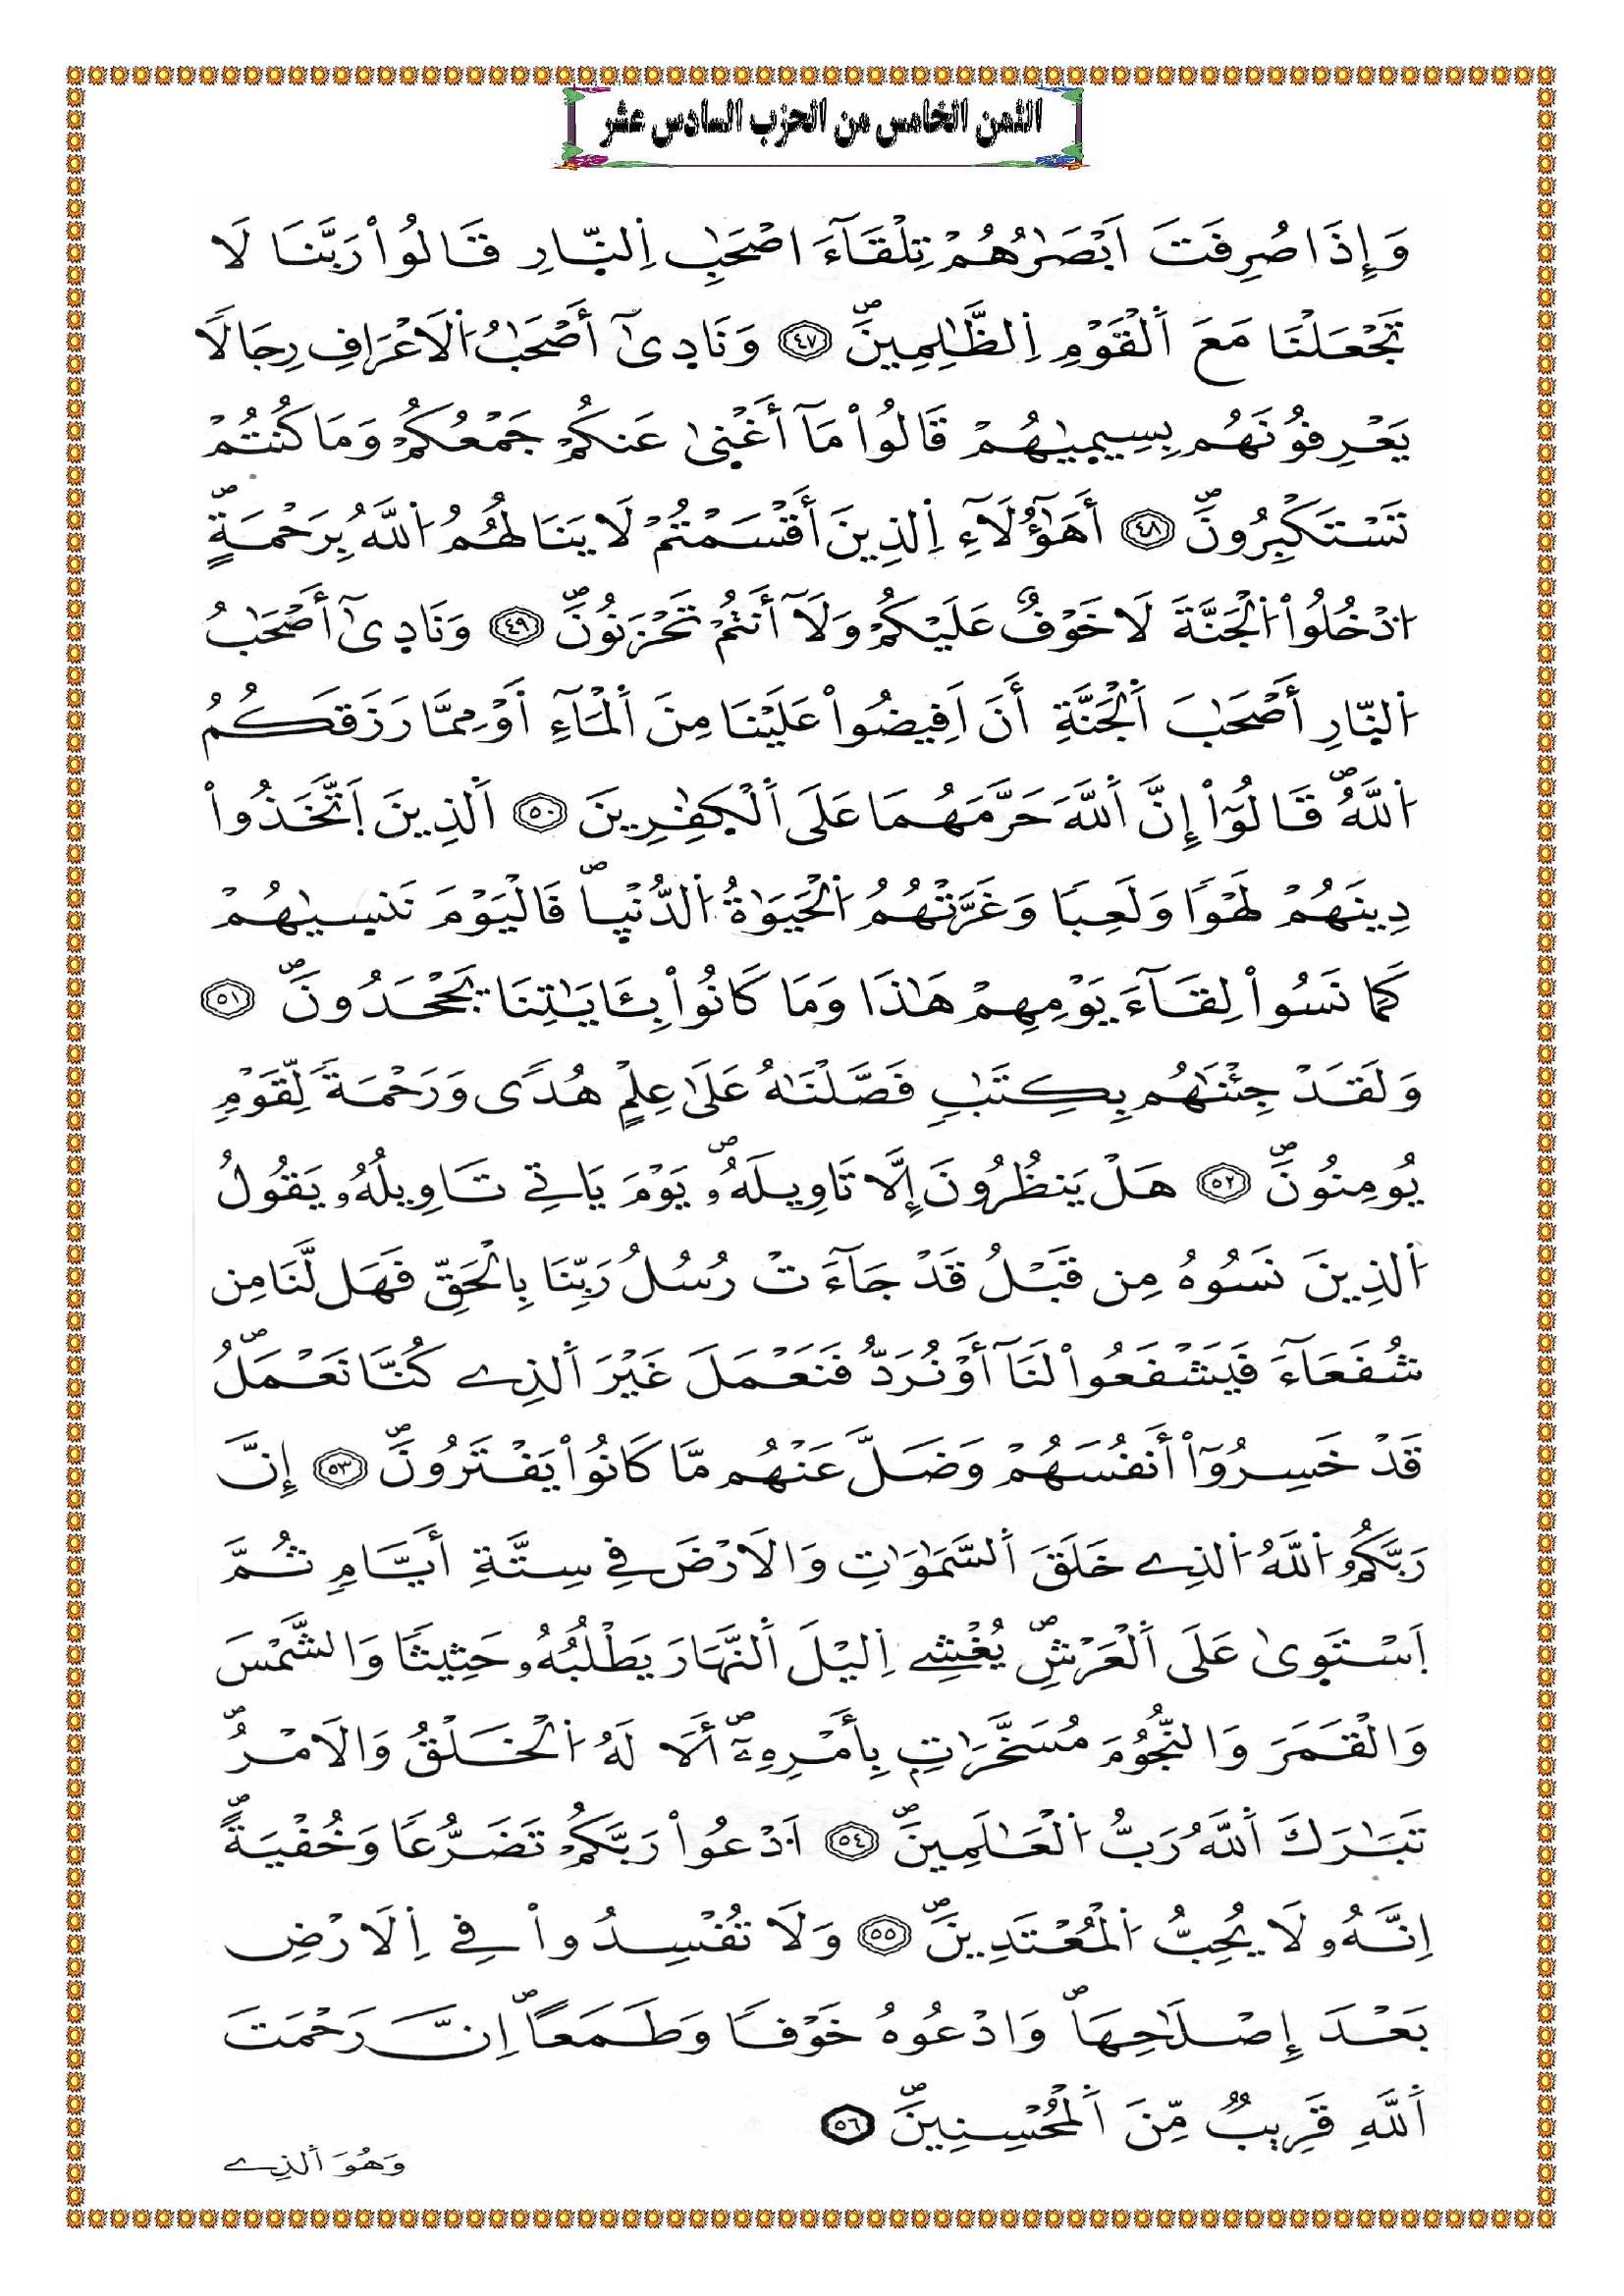 الثمن الخامس من الحزب السادس عشر
وَإِذَا صُرِفَتَ اَبْصَٰرُهُمْ تِلْقَآءَ اصْحَٰبِ اِ۬لنّ۪ارِ قَالُواْ رَبَّنَا لَا
تَجْعَلْنَا مَعَ اَ۬لْقَوْمِ اِ۬لظَّٰلِمِينَۖ ٤٧ وَنَاد۪يٰٓ أَصْحَٰبُ اُ۬لَاعْرَافِ رِجَالاٗ
يَعْرِفُونَهُم بِسِيم۪يٰهُمْ قَالُواْ مَآ أَغْن۪يٰ عَنكُمْ جَمْعُكُمْ وَمَا كُنتُمْ
تَسْتَكْبِرُونَۖ ٤٨ أَهَٰٓؤُلَآءِ اِ۬لذِينَ أَقْسَمْتُمْ لَا يَنَالُهُمُ اُ۬للَّهُ بِرَحْمَةٍۖ
اُ۟دْخُلُواْ اُ۬لْجَنَّةَ لَا خَوْفٌ عَلَيْكُمْ وَلَآ أَنتُمْ تَحْزَنُونَۖ ٤٩ وَنَاد۪يٰٓ أَصْحَٰبُ
اُ۬لنّ۪ارِ أَصْحَٰبَ اَ۬لْجَنَّةِ أَنَ اَفِيضُواْ عَلَيْنَا مِنَ اَ۬لْمَآءِ اَ۪وْ مِمَّا رَزَقَكُمُ
اُ۬للَّهُۖ قَالُوٓاْ إِنَّ اَ۬للَّهَ حَرَّمَهُمَا عَلَي اَ۬لْكٰ۪فِرِينَ ٥٠ اَ۬لذِينَ اَ۪تَّخَذُواْ
دِينَهُمْ لَهْواٗ وَلَعِباٗ وَغَرَّتْهُمُ اُ۬لْحَيَوٰةُ اُ۬لدُّنْي۪اۖ فَالْيَوْمَ نَنس۪يٰهُمْ
كَمَا نَسُواْ لِقَآءَ يَوْمِهِمْ هَٰذَا وَمَا كَانُواْ بِـَٔايَٰتِنَا يَجْحَدُونَۖ ٥١
وَلَقَدْ جِئْنَٰهُم بِكِتَٰبٖ فَصَّلْنَٰهُ عَلَيٰ عِلْمٍ هُديٗ وَرَحْمَةٗ لِّقَوْمٖ
يُومِنُونَۖ ٥٢ هَلْ يَنظُرُونَ إِلَّا تَاوِيلَهُۥۖ يَوْمَ يَاتِے تَاوِيلُهُۥ يَقُولُ
اُ۬لذِينَ نَسُوهُ مِن قَبْلُ قَدْ جَآءَتْ رُسُلُ رَبِّنَا بِالْحَقِّ فَهَل لَّنَا مِن
شُفَعَآءَ فَيَشْفَعُواْ لَنَآ أَوْ نُرَدُّ فَنَعْمَلَ غَيْرَ اَ۬لذِے كُنَّا نَعْمَلُۖ
قَدْ خَسِرُوٓاْ أَنفُسَهُمْ وَضَلَّ عَنْهُم مَّا كَانُواْ يَفْتَرُونَۖ ٥٣ إِنَّ
رَبَّكُمُ اُ۬للَّهُ اُ۬لذِے خَلَقَ اَ۬لسَّمَٰوَٰتِ وَالَارْضَ فِے سِتَّةِ أَيَّامٖ ثُمَّ
اَ۪سْتَو۪يٰ عَلَي اَ۬لْعَرْشِۖ يُغْشِے اِ۬ليْلَ اَ۬لنَّهَارَ يَطْلُبُهُۥ حَثِيثاٗ وَالشَّمْسَ
وَالْقَمَرَ وَالنُّجُومَ مُسَخَّرَٰتِۢ بِأَمْرِهِۦٓۖ أَلَا لَهُ اُ۬لْخَلْقُ وَالَامْرُۖ
تَبَٰرَكَ اَ۬للَّهُ رَبُّ اُ۬لْعَٰلَمِينَۖ ٥٤ اَ۟دْعُواْ رَبَّكُمْ تَضَرُّعاٗ وَخُفْيَةًۖ
اِنَّهُۥ لَا يُحِبُّ اُ۬لْمُعْتَدِينَۖ ٥٥ وَلَا تُفْسِدُواْ فِے اِ۬لَارْضِ
بَعْدَ إِصْلَٰحِهَاۖ وَادْعُوهُ خَوْفاٗ وَطَمَعاًۖ اِنَّ رَحْمَتَ
اَ۬للَّهِ قَرِيبٌ مِّنَ اَ۬لْمُحْسِنِينَۖ ٥٦
وَهُوَ اَ۬لذِے